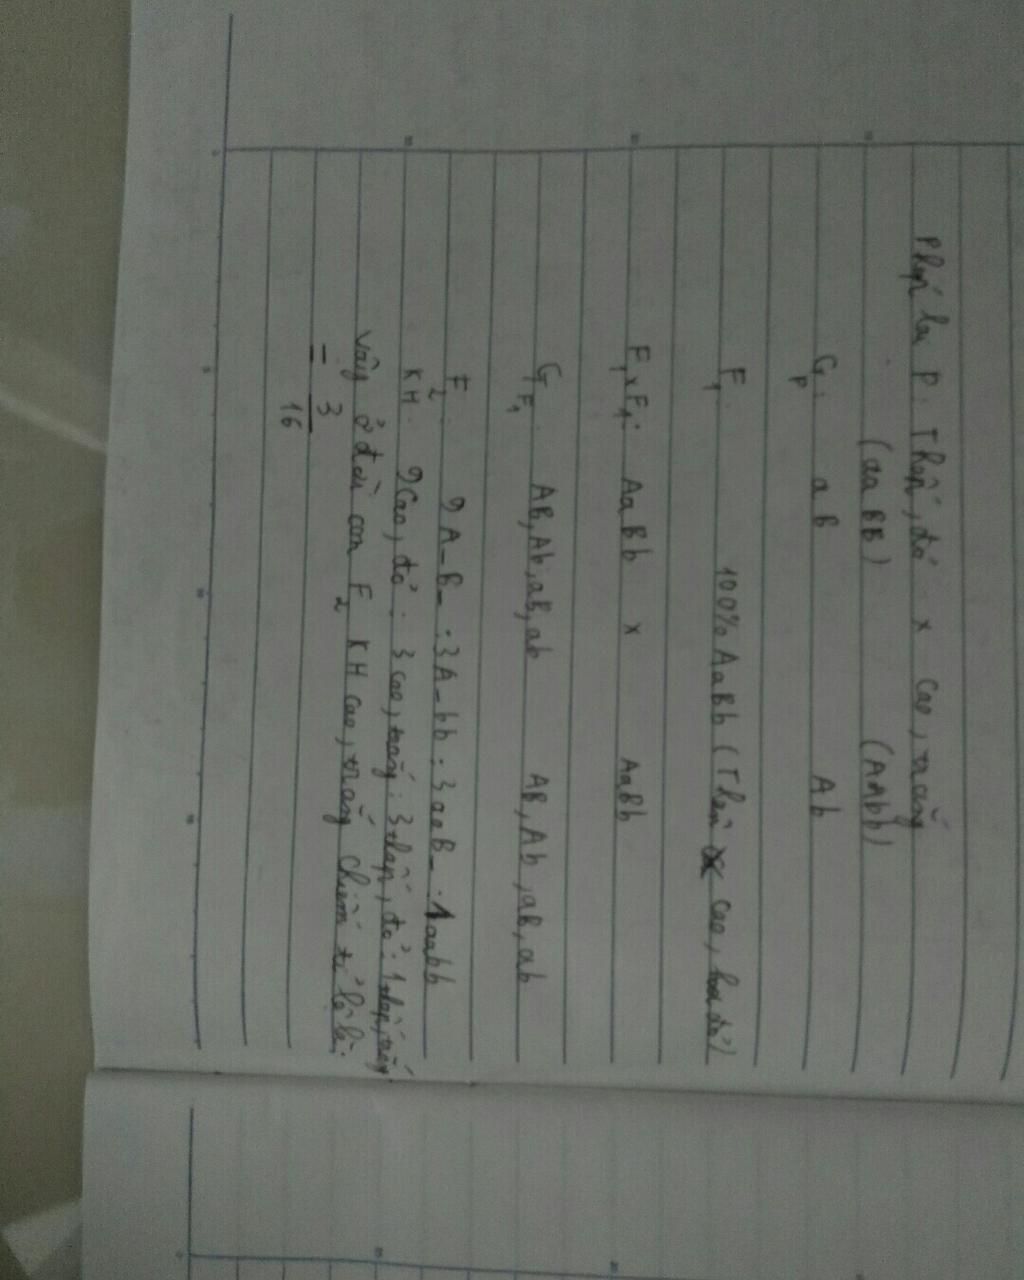 Phép lai P: Thấp, đỏ x cao, trắng
(aaBB) (AAbb)
GP: aB Ab
F1 100% AaBb (Thân cao, hoa đỏ)
F1xF1: AaBb x AaBb
GF1: AB, Ab, aB, ab AB, Ab, aB, ab
F2: 9A-B- : 3A-bb : 3aaB- : 1aabb
KH: 9 Cao, đỏ : 3 cao, trắng : 3 thấp, đỏ : 1 thấp, trắng.
Vậy ở đời con F2 KH cao, trắng chiếm tỉ lệ là:
= 3/16